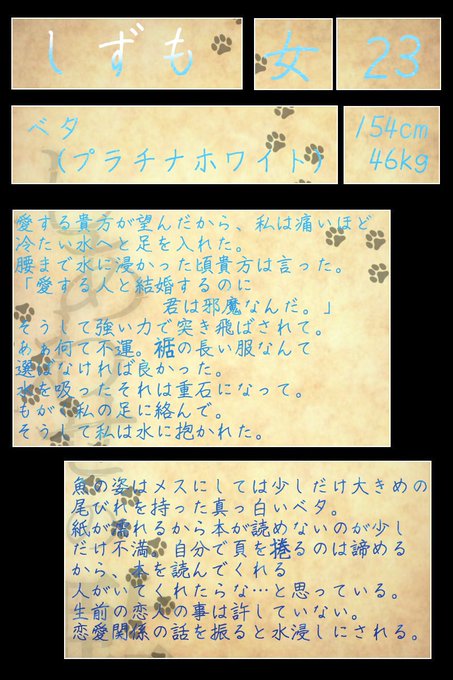 しずも
女
23
ベタ
(プラチナホワイト)
154cm
46kg
愛する貴方が望んだから、私は痛いほど
冷たい水へと足を入れた。
腰まで水に浸かった頃貴方は言った。
「愛する人と結婚するのに
君は邪魔なんだ。」
そうして強い力で突き飛ばされて。
あぁ何て不運。裾の長い服なんて
選ばなければ良かった。
水を吸ったそれは重石になって。
もがく私の足に絡んで。
そうして私は水に抱かれた。
魚の姿はメスにしては少しだけ大きめの
尾びれを持った真っ白いベタ。
紙が濡れるから本が読めないのが少し
だけ不満。自分で頁を捲るのは諦める
から、本を読んでくれる
人がいてくれたらな…と思っている。
生前の恋人の事は許していない。
恋愛関係の話を振ると水浸しにされる。